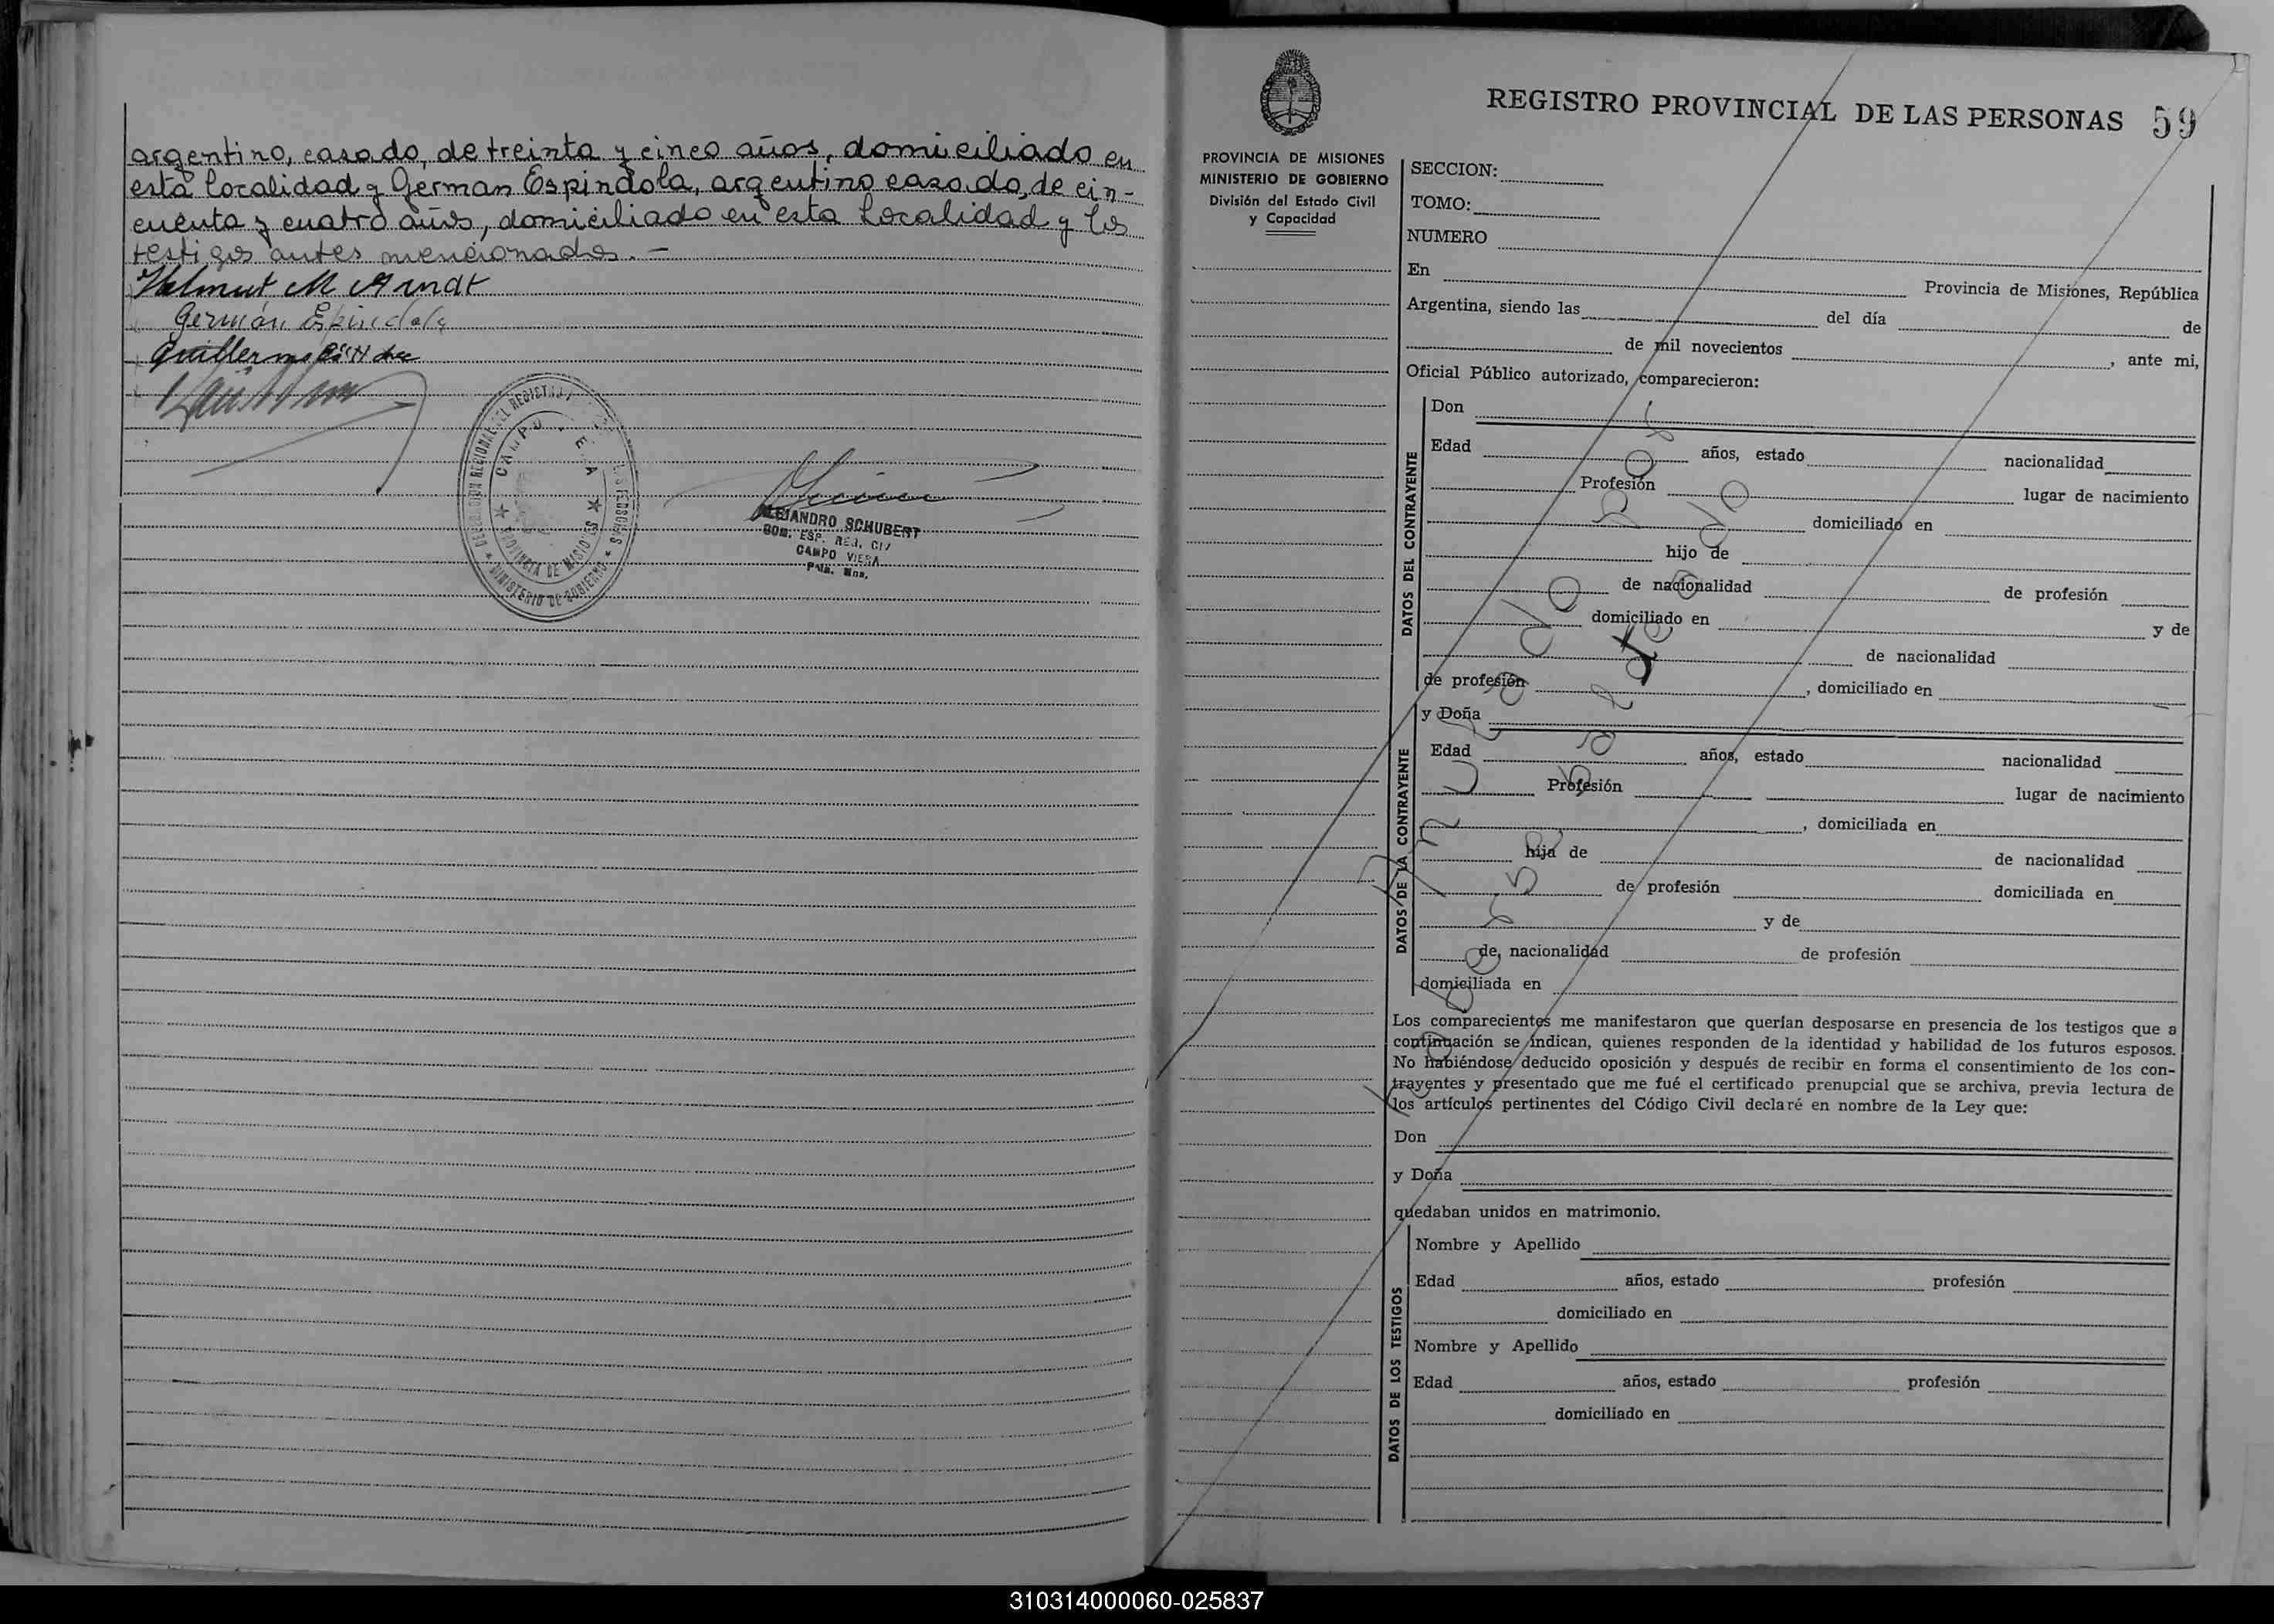 argentino, casado, de treinta y cinco años, domiciliado en
esta localidad y German Espindola, argentino casado, de cin-
cuenta y cuatro años, domiciliado en esta localidad y los
testigos antes mencionados. —
Helmut M Arndt
Germán Espindola
Guillermo
DELEGACION REGIONAL DEL REGISTRO PERSONAS
CAMPO VIERA
PROVINCIA DE MISIONES
MINISTERIO DE GOBIERNO
ALEJANDRO SCHUBERT
REG. CIV
CAMPO VIERA
REGISTRO PROVINCIAL DE LAS PERSONAS 59
PROVINCIA DE MISIONES
MINISTERIO DE GOBIERNO
División del Estado Civil
y Capacidad
SECCION:
TOMO:
NUMERO
En Provincia de Misiones, República
Argentina, siendo las del día de
de mil novecientos , ante mi,
Oficial Público autorizado, comparecieron:
DATOS DEL CONTRAYENTE
Don
Edad años, estado nacionalidad
Profesión lugar de nacimiento
domiciliado en
hijo de
de nacionalidad de profesión
domiciliado en y de
de nacionalidad
de profesión , domiciliado en
DATOS DE LA CONTRAYENTE
y Doña
Edad años, estado nacionalidad
Profesión lugar de nacimiento
, domiciliada en
hija de de nacionalidad
de profesión domiciliada en
y de
de, nacionalidad de profesión
domiciliada en
Anulado por
Los comparecientes me manifestaron que querían desposarse en presencia de los testigos que a
continuación se indican, quienes responden de la identidad y habilidad de los futuros esposos.
No habiéndose deducido oposición y después de recibir en forma el consentimiento de los con-
trayentes y presentado que me fué el certificado prenupcial que se archiva, previa lectura de
los artículos pertinentes del Código Civil declaré en nombre de la Ley que:
Don
y Doña
quedaban unidos en matrimonio.
DATOS DE LOS TESTIGOS
Nombre y Apellido
Edad años, estado profesión
domiciliado en
Nombre y Apellido
Edad años, estado profesión
domiciliado en
310314000060-025837